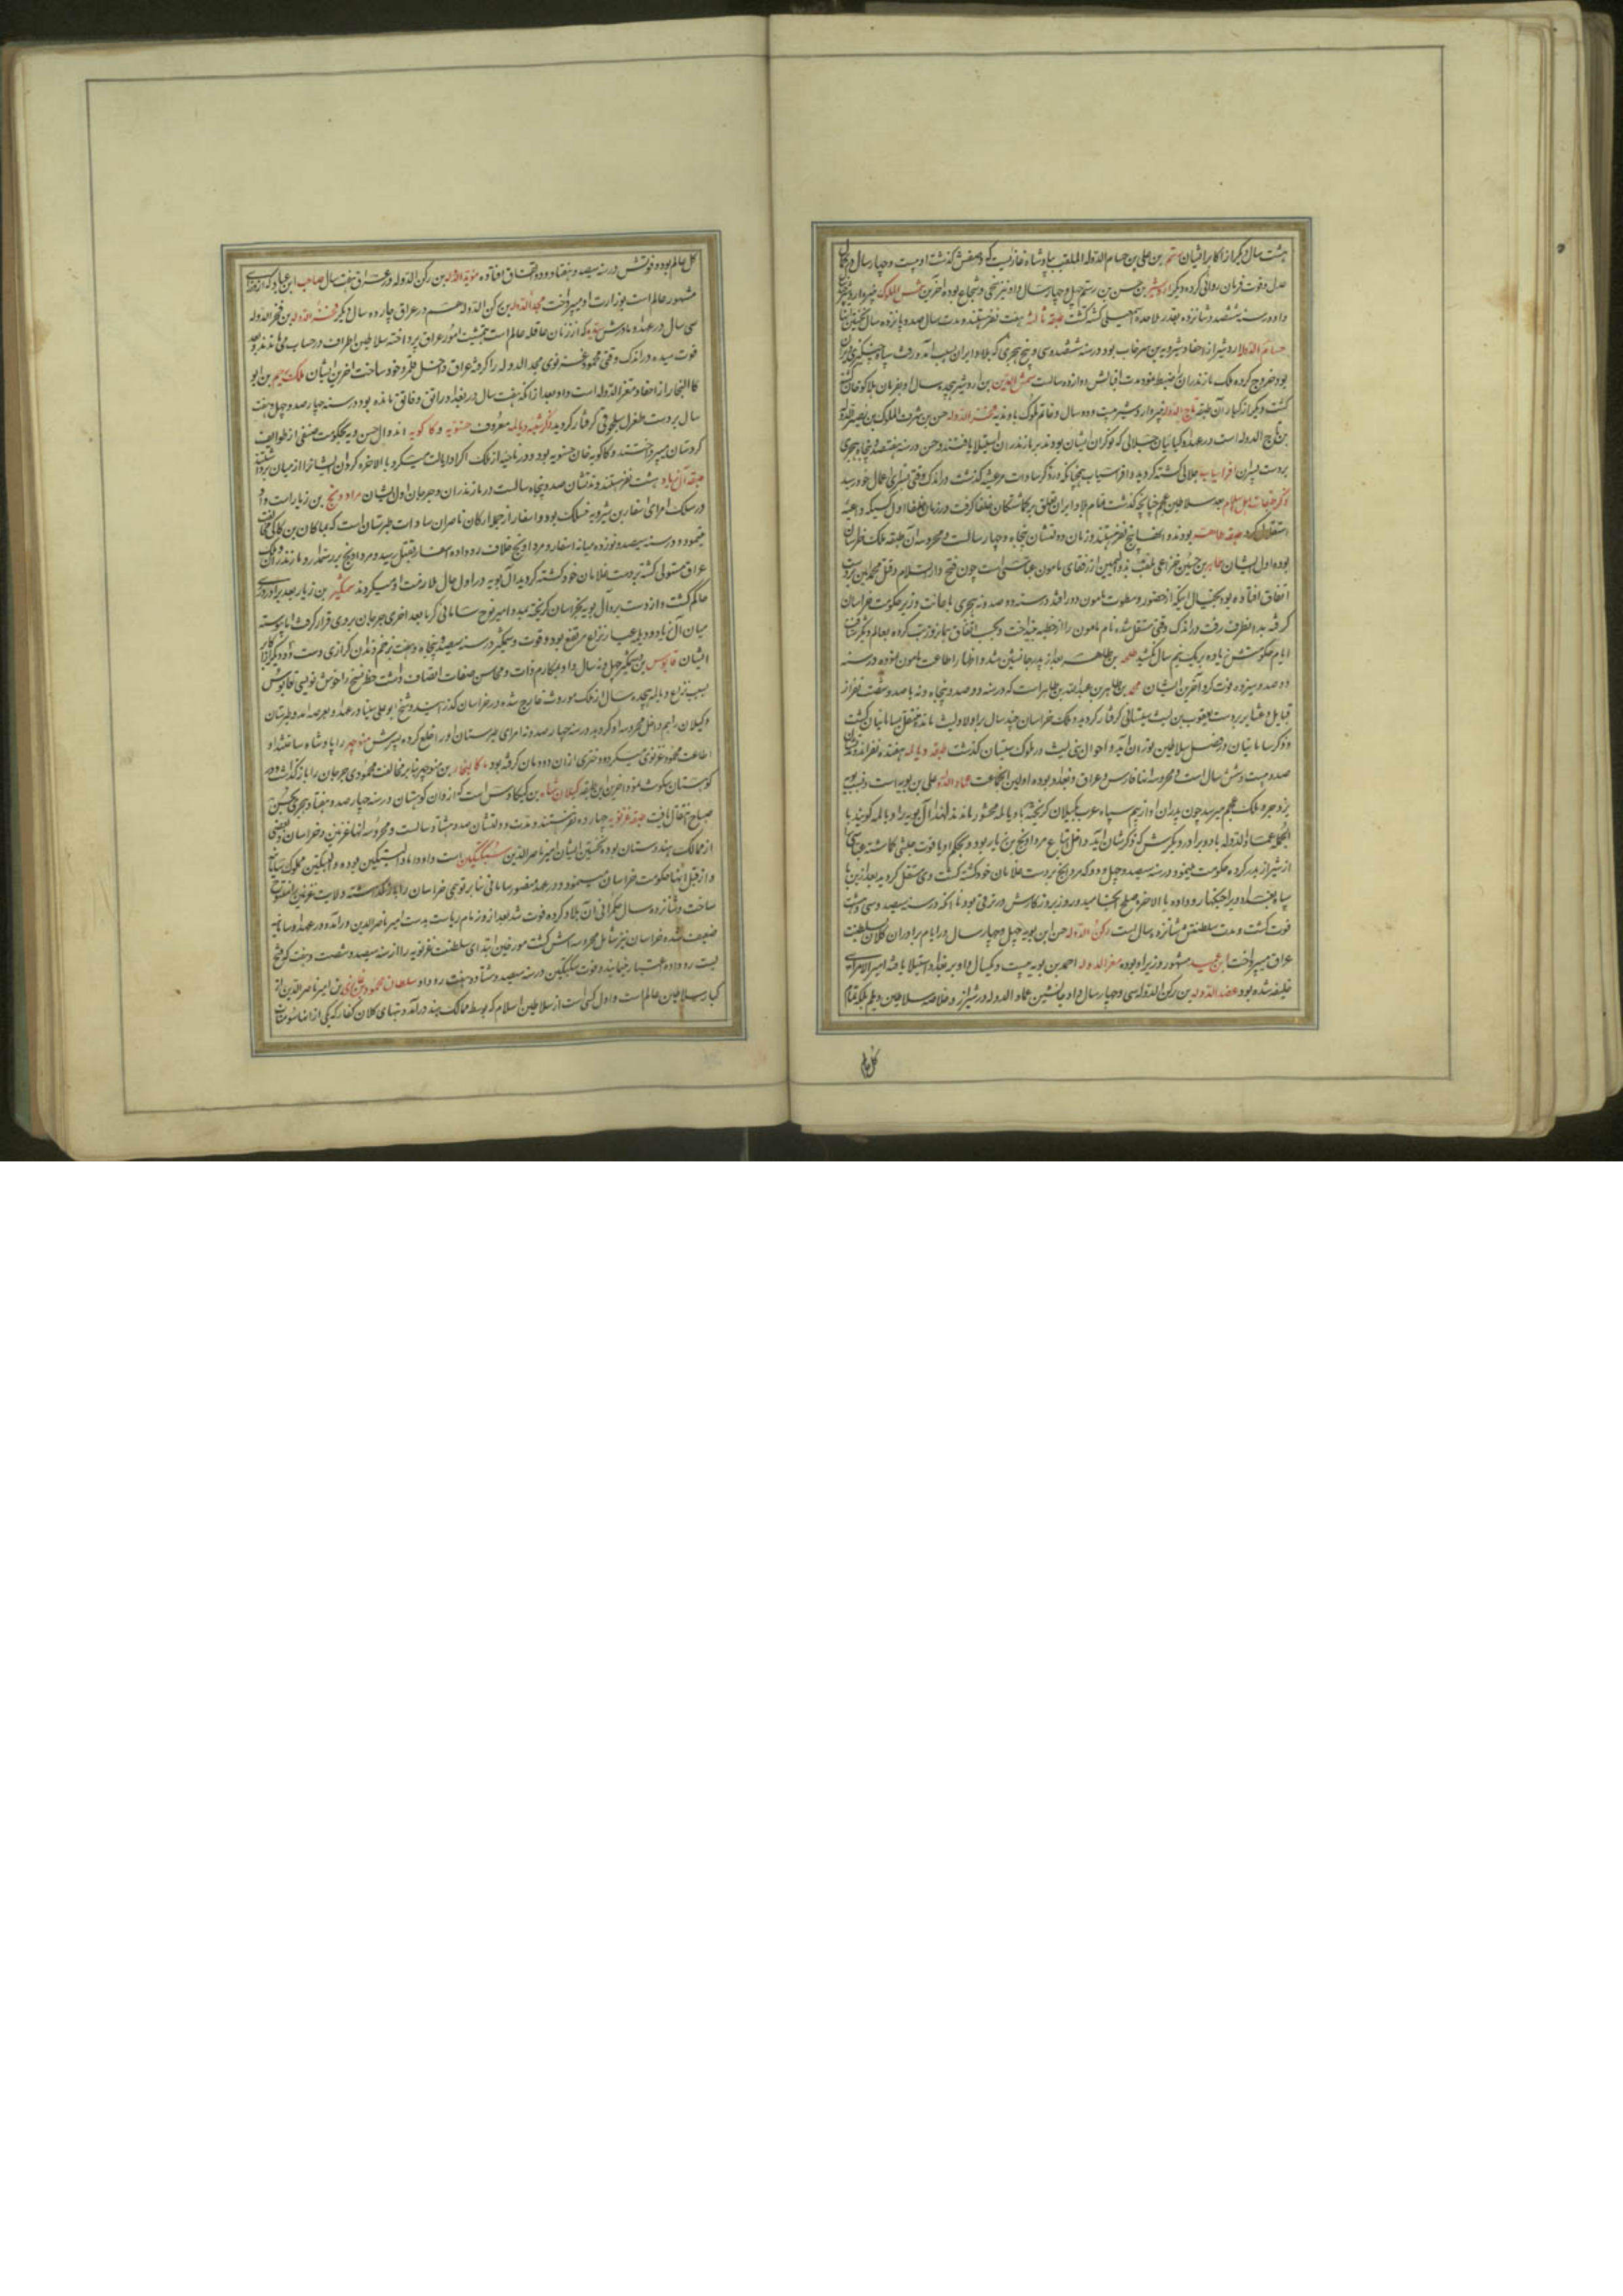 هشت سال دیگر از اکابر ایشان رستم بن علی بن حسام الدوله الملقب بپادشاه غازیست که وصفش گذشت او بیست و چهار سال در کمال
عدل و قوت فرمان روائی کرده دیگر اردشیر بن حسن بن رستم چهل و چهار سال و او نیز سخی و شجاع بوده آخرین شمس الملوک
داد و در سنه ششصد و شانزده بغدر ملاحده اسمعیلی کشته گشت طبقه ثالثه هفت نفر هستند و مدت سال صد و پانزده سال نخستین
حسام الدوله اردشیر از احفاد شیرویه بن سرخاب بود در سنه ششصد و سی و پنج هجری که بلاد ایران بسبب آمد و رفت سپاه چنگیزی ویران
بود خروج کرده ملک مازندران را ضبط نمود مدت اقبالش دوازده سالست شمس الدین بن اردشیر هجده سال او بفرمان هلاکو خان کشته
گشت دیگر از کبار آن طبقه تاج الدوله بیست و دو سال و خاتم ملوک باوندیه فخر الدوله حسن بن شرف الملوک بن نصیر الدوله
بن تاج الدوله است در عهد او کیانیان جلالی که نوکران ایشان بودند بر مازندران استیلا یافتند و حسن در سنه هفتصد و پنجاه هجری
بر دست پسران افراسیاب جلالی کشته گردید و افراسیاب چنانکه در ذکر سادات مرعشیه گذشت در اندک وقتی بسزای اعمال خود رسید
ذکر طبقات اهل اسلام بعد سلاطین عجم چنانچه گذشت تمام بلاد ایران تعلق بر گماشتگان خلفا گرفت در زمان خلفا اول کسیکه داعیه
استقلال کرد طبقه طاهریه بودند و اینها پنج نفر هستند و زمان دولتشان پنجاه و چهار سالست و محروسه آن طبقه ملک خراسان
بوده اول ایشان طاهر بن حسین خزاعی ملقب بذو الیمینین از رفقای مامون عباسی است چون فتح دار السلام و قتل محمد امین بر دست
اتفاق افتاده بود بخیال اینکه از حضور و سطوت مامون دور افتد در سنه دو صد و نه هجری باعانت وزیر حکومت خراسان
گرفته بدانطرف رفت در اندک وقتی مستقل شده نام مامون را از خطبه بینداخت و بحسب اتفاق همان روز تب کرده بعالم دیگر شتافت
ایام حکومتش زیاده بر یک نیم سال نکشید طلحه بن طاهر بعد از پدر جانشین شد و اظهار اطاعت مامون نموده در سنه
دو صد و سیزده فوت کرد آخرین ایشان محمد بن طاهر بن عبدالله بن طاهر است که در سنه دو صد و پنجاه و نه با صد و شصت نفر از
قبایل و عشایر بر دست یعقوب بن لیث سیستانی گرفتار گردید و ملک خراسان چند سال با ولاد لیث مانده منتقل بسامانیان گشت
و ذکر سامانیان در فصل سلاطین توران آید و احوال بنی لیث در ملوک سیستان گذشت طبقه دیالمه هفده نفر اند
صد و بیست و شش سال است و محروسه آنها فارس و عراق و بغداد بوده اولین آنجماعت عماد الدوله علی بن بویه است و نسب بویه
یزدجرد ملک عجم میرسد چون پدران او از بیم سپاه عرب بگیلان گریخته با دیالمه محشور ماندند لهذا آل بویه را دیالمه گویند
الجمله عماد الدوله با دو برادر دیگرش که ذکرشان آید داخل اتباع مرداویج بن زیار بود و بحکم او یاقوت حبشی گماشته عباسی
از شیراز بدر کرده حکومت مینمود در سنه سیصد و چهل و دو که مرداویج بر دست غلامان خود کشته گشت وی مستقل گردید بعد ازین با
سپاه بغداد ویرا جنگها رو داده بالاخره صلح انجامید روز بروز کارش در ترقی بود تا آنکه در سنه سیصد و سی و هشت
فوت گشت و مدت سلطنتش شانزده سال است رکن الدوله حسن ابن بویه چهل و چهار سال در ایام برادران کلان بسلطنت
عراق میپرداخت ابن عمید مشهور وزیر او بوده معز الدوله احمد بن بویه بیست و یکسال داد بر بغداد استیلا یافته امیر الامرای
خلیفه شده بود عضد الدوله بن رکن الدوله سی و چهار سال داد جانشین عماد الدوله در شیراز و خلاصه سلاطین دیلم بلکه تمام
کل عالم
کل عالم بوده فوتش در سنه سیصد و هفتاد و دو اتفاق افتاده موید الدوله بن رکن الدوله در عراق هفت سال صاحب ابن عباد که از
مشهور عالم است بوزارت او میپرداخت مجد الدوله بن رکن الدوله هم در عراق چارده سال دیگر فخر الدوله بن فخر الدوله
سی سال در عهد او مادرش سیده که از زنان عاقله عالم است بتمشیت امور عراق پرداخته سلاطین اطراف در حساب می ماندند بعد
فوت سیده در اندک وقتی محمود غزنوی مجد الدوله را گرفته عراق داخل قلمرو خود ساخت آخرین ایشان ملک رحیم بن ابو
کالنجار از احفاد معز الدوله است داد بعد از آنکه هفت سال در بغداد راتق و فاتق مانده بود در سنه چهار صد و چهل هفت
سال بر دست طغرل سلجوقی گرفتار گردید ذکر شعبه دیالمه معروف حسنویه و کاکویه اند و آل حسنویه بحکومت صنفی از طوایف
کردستان میپرداختند و کاکویه خان حسنویه بود در ناحیه از ملک اکراد ایالت میکرد بالاخره کردان ایشانرا از میان برداشتند
طبقه آل زیاد هشت نفر هستند و مدتشان صد و پنجاه سالست در مازندران و جرجان اول ایشان مرداویج بن زیار است و او
در سلک امرای اسفار بن شیرویه منسلک بود و اسفار از جمله ارکان ناصران سادات طبرستان است که با ماکان بن کاکی مخالفت
مینمود در سنه سیصد و نوزده میانه اسفار و مرداویج خلاف رو داده اسفار بقتل رسید و مرداویج بر رستمدار و مازندران و ملک
عراق مستولی گشته بر دست غلامان خود کشته گردید آل بویه در اول حال ملازمت او میکردند وشمگیر بن زیار بعد برادر در ری
حاکم گشت و از دست برد آل بویه بخراسان گریخته بمدد امیر نوح سامانی کرة بعد اخری جرجان بر وی قرار گرفت اما پیوسته
میان آل زیاد و دیلم غبار نزاع مرتفع بود و فوت وشمگیر در سنه سیصد و پنجاه و هفت بزخم دندان گرازی دست داد دیگر از اکابر
ایشان قابوس بن وشمگیر چهل و نه سال داد بمکارم ذات و محاسن صفات اتصاف داشت خط نسخ را خوش نوشتی قابوس
بسبب نزاع دیالمه هجده سال از ملک موروث خارج شده در خراسان گذرانید و شیخ ابو علی سینا در عهد او بعرصه آمد و طبرستان
و گیلان را هم داخل محروسه او گردید در سنه چهار صد و نه امرای طبرستان او را خلع کرده پسرش منوچهر را پادشاه ساختند او
اطاعت محمود غزنوی میکرد و دختری از آن دودمان گرفته بود باکالنجار بن منوچهر بنابر مخالفت محمودی جرجان را باز گذاشت و در
کوهستان سکونت نمود آخرین این طبقه گیلان شاه بن کیکاوس است که از دان کوهستان در سنه چهار صد و هفتاد هجری بحسن
صباح انتقال یافت طبقه غزنویه چهارده نفر هستند و مدت دولتشان صد و هشتاد سالست و محروسه آنها غزنین و خراسان و بعضی
از ممالک هندوستان بوده نخستین ایشان امیر ناصر الدین سبکتگین است و او داماد البتکین بوده و البتکین مملوک سامانیان
و از قبل آنها حکومت خراسان مینمود و در عهد منصور سامانی بنابر توهمی خراسان را باز گذاشته ولایت غزنین را متصرف
ساخت و شانزده سال حکمرانی آن بلاد کرده فوت شد بعد از او زمام ریاست بدست امیر ناصر الدین در آمده و در عهد او سامانیه
ضعیف شده خراسان نیز شامل محروسه اش گشت مورخین ابتدای سلطنت غزنویه را از سنه سیصد و شصت و هفت که فتح
بست رو داده اعتبار نمایند و فوت سبکتگین در سنه سیصد و هشتاد و هفت رو داد سلطان محمود غازی بن امیر ناصر الدین از
کبار سلاطین عالم است و اول کسی است از سلاطین اسلام که بوسط ممالک هند در آمد و بتهای کلان کفار که یکی از آنها سومنات